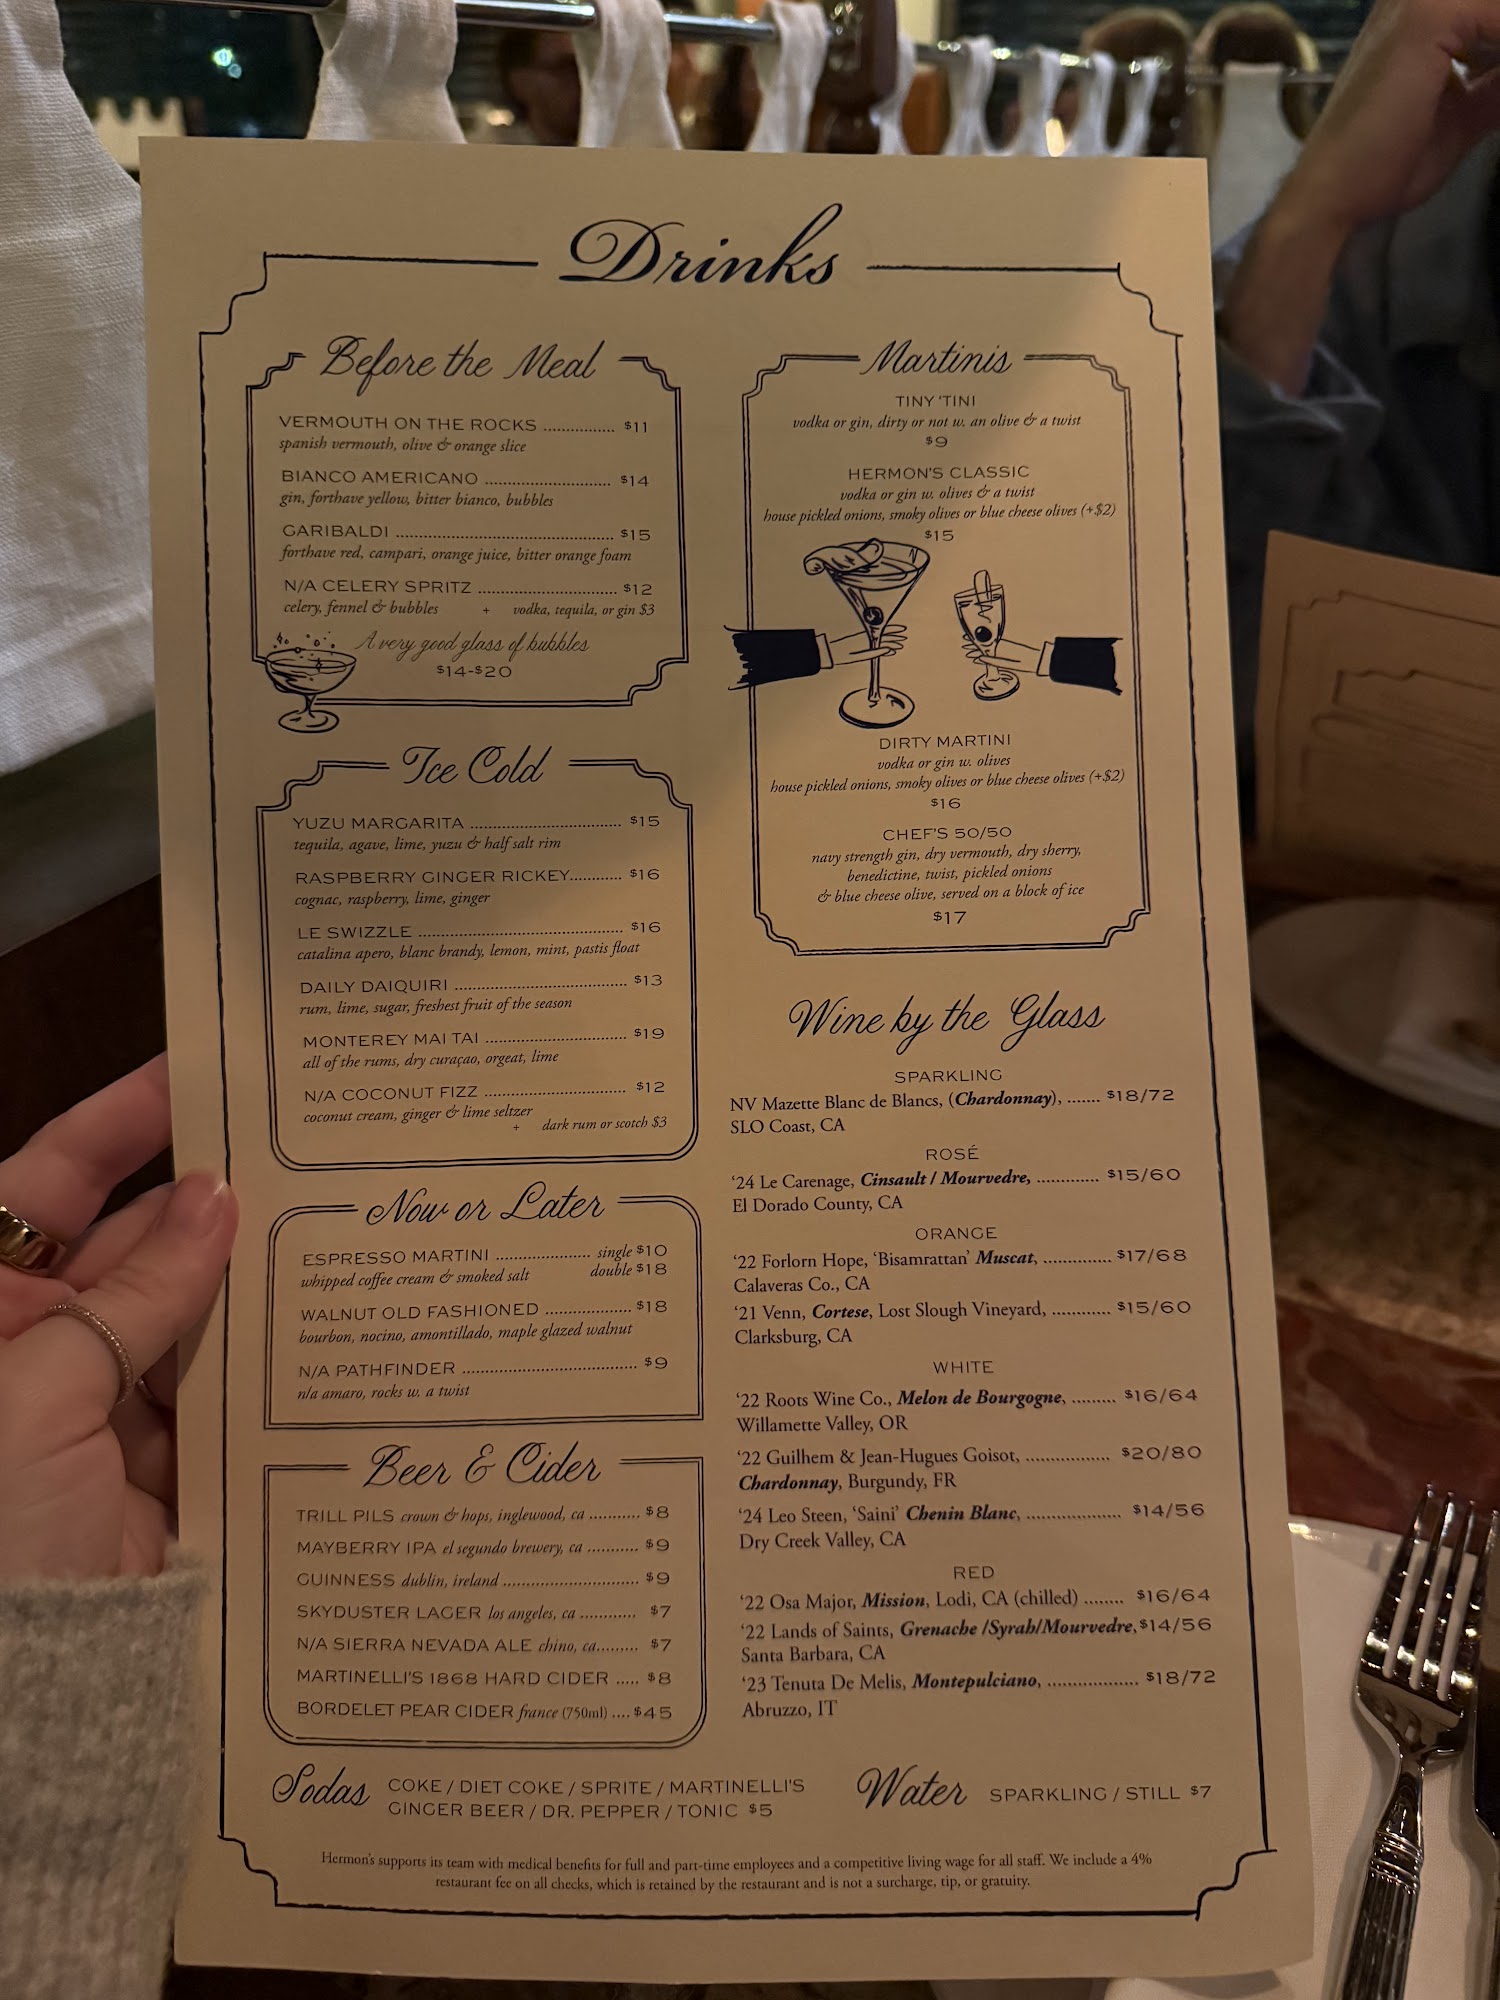 Drinks
Before the Meal
VERMOUTH ON THE ROCKS ............... $11
spanish vermouth, olive & orange slice
BIANCO AMERICANO .......................... $14
gin, forthave yellow, bitter bianco, bubbles
GARIBALDI .............................................. $15
forthave red, campari, orange juice, bitter orange foam
N/A CELERY SPRITZ ............................. $12
celery, fennel & bubbles + vodka, tequila, or gin $3
A very good glass of bubbles
$14-$20
Ice Cold
YUZU MARGARITA ................................ $15
tequila, agave, lime, yuzu & half salt rim
RASPBERRY GINGER RICKEY........... $16
cognac, raspberry, lime, ginger
LE SWIZZLE ........................................... $16
catalina apero, blanc brandy, lemon, mint, pastis float
DAILY DAIQUIRI .................................... $13
rum, lime, sugar, freshest fruit of the season
MONTEREY MAI TAI .............................. $19
all of the rums, dry curaçao, orgeat, lime
N/A COCONUT FIZZ .............................. $12
coconut cream, ginger & lime seltzer
+ dark rum or scotch $3
Now or Later
ESPRESSO MARTINI .................... single $10
whipped coffee cream & smoked salt double $18
WALNUT OLD FASHIONED .................. $18
bourbon, nocino, amontillado, maple glazed walnut
N/A PATHFINDER ..................................... $9
n/a amaro, rocks w. a twist
Beer & Cider
TRILL PILS crown & hops, inglewood, ca ........... $8
MAYBERRY IPA el segundo brewery, ca ........... $9
GUINNESS dublin, ireland ............................. $9
SKYDUSTER LAGER los angeles, ca ............ $7
N/A SIERRA NEVADA ALE chino, ca......... $7
MARTINELLI'S 1868 HARD CIDER ..... $8
BORDELET PEAR CIDER france (750ml) .... $45
Martinis
TINY 'TINI
vodka or gin, dirty or not w. an olive & a twist
$9
HERMON'S CLASSIC
vodka or gin w. olives & a twist
house pickled onions, smoky olives or blue cheese olives (+$2)
$15
DIRTY MARTINI
vodka or gin w. olives
house pickled onions, smoky olives or blue cheese olives (+$2)
$16
CHEF'S 50/50
navy strength gin, dry vermouth, dry sherry,
benedictine, twist, pickled onions
& blue cheese olive, served on a block of ice
$17
Wine by the Glass
SPARKLING
NV Mazette Blanc de Blancs, (Chardonnay), ....... $18/72
SLO Coast, CA
ROSÉ
'24 Le Carenage, Cinsault / Mourvedre, ............. $15/60
El Dorado County, CA
ORANGE
'22 Forlorn Hope, 'Bisamrattan' Muscat, .............. $17/68
Calaveras Co., CA
'21 Venn, Cortese, Lost Slough Vineyard, ............ $15/60
Clarksburg, CA
WHITE
'22 Roots Wine Co., Melon de Bourgogne, ......... $16/64
Willamette Valley, OR
'22 Guilhem & Jean-Hugues Goisot, .................. $20/80
Chardonnay, Burgundy, FR
'24 Leo Steen, 'Saini' Chenin Blanc, .................... $14/56
Dry Creek Valley, CA
RED
'22 Osa Major, Mission, Lodi, CA (chilled) ........ $16/64
'22 Lands of Saints, Grenache /Syrah/Mourvedre, $14/56
Santa Barbara, CA
'23 Tenuta De Melis, Montepulciano, ................... $18/72
Abruzzo, IT
Sodas COKE / DIET COKE / SPRITE / MARTINELLI'S
GINGER BEER / DR. PEPPER / TONIC $5
Water SPARKLING / STILL $7
Hermon's supports its team with medical benefits for full and part-time employees and a competitive living wage for all staff. We include a 4%
restaurant fee on all checks, which is retained by the restaurant and is not a surcharge, tip, or gratuity.